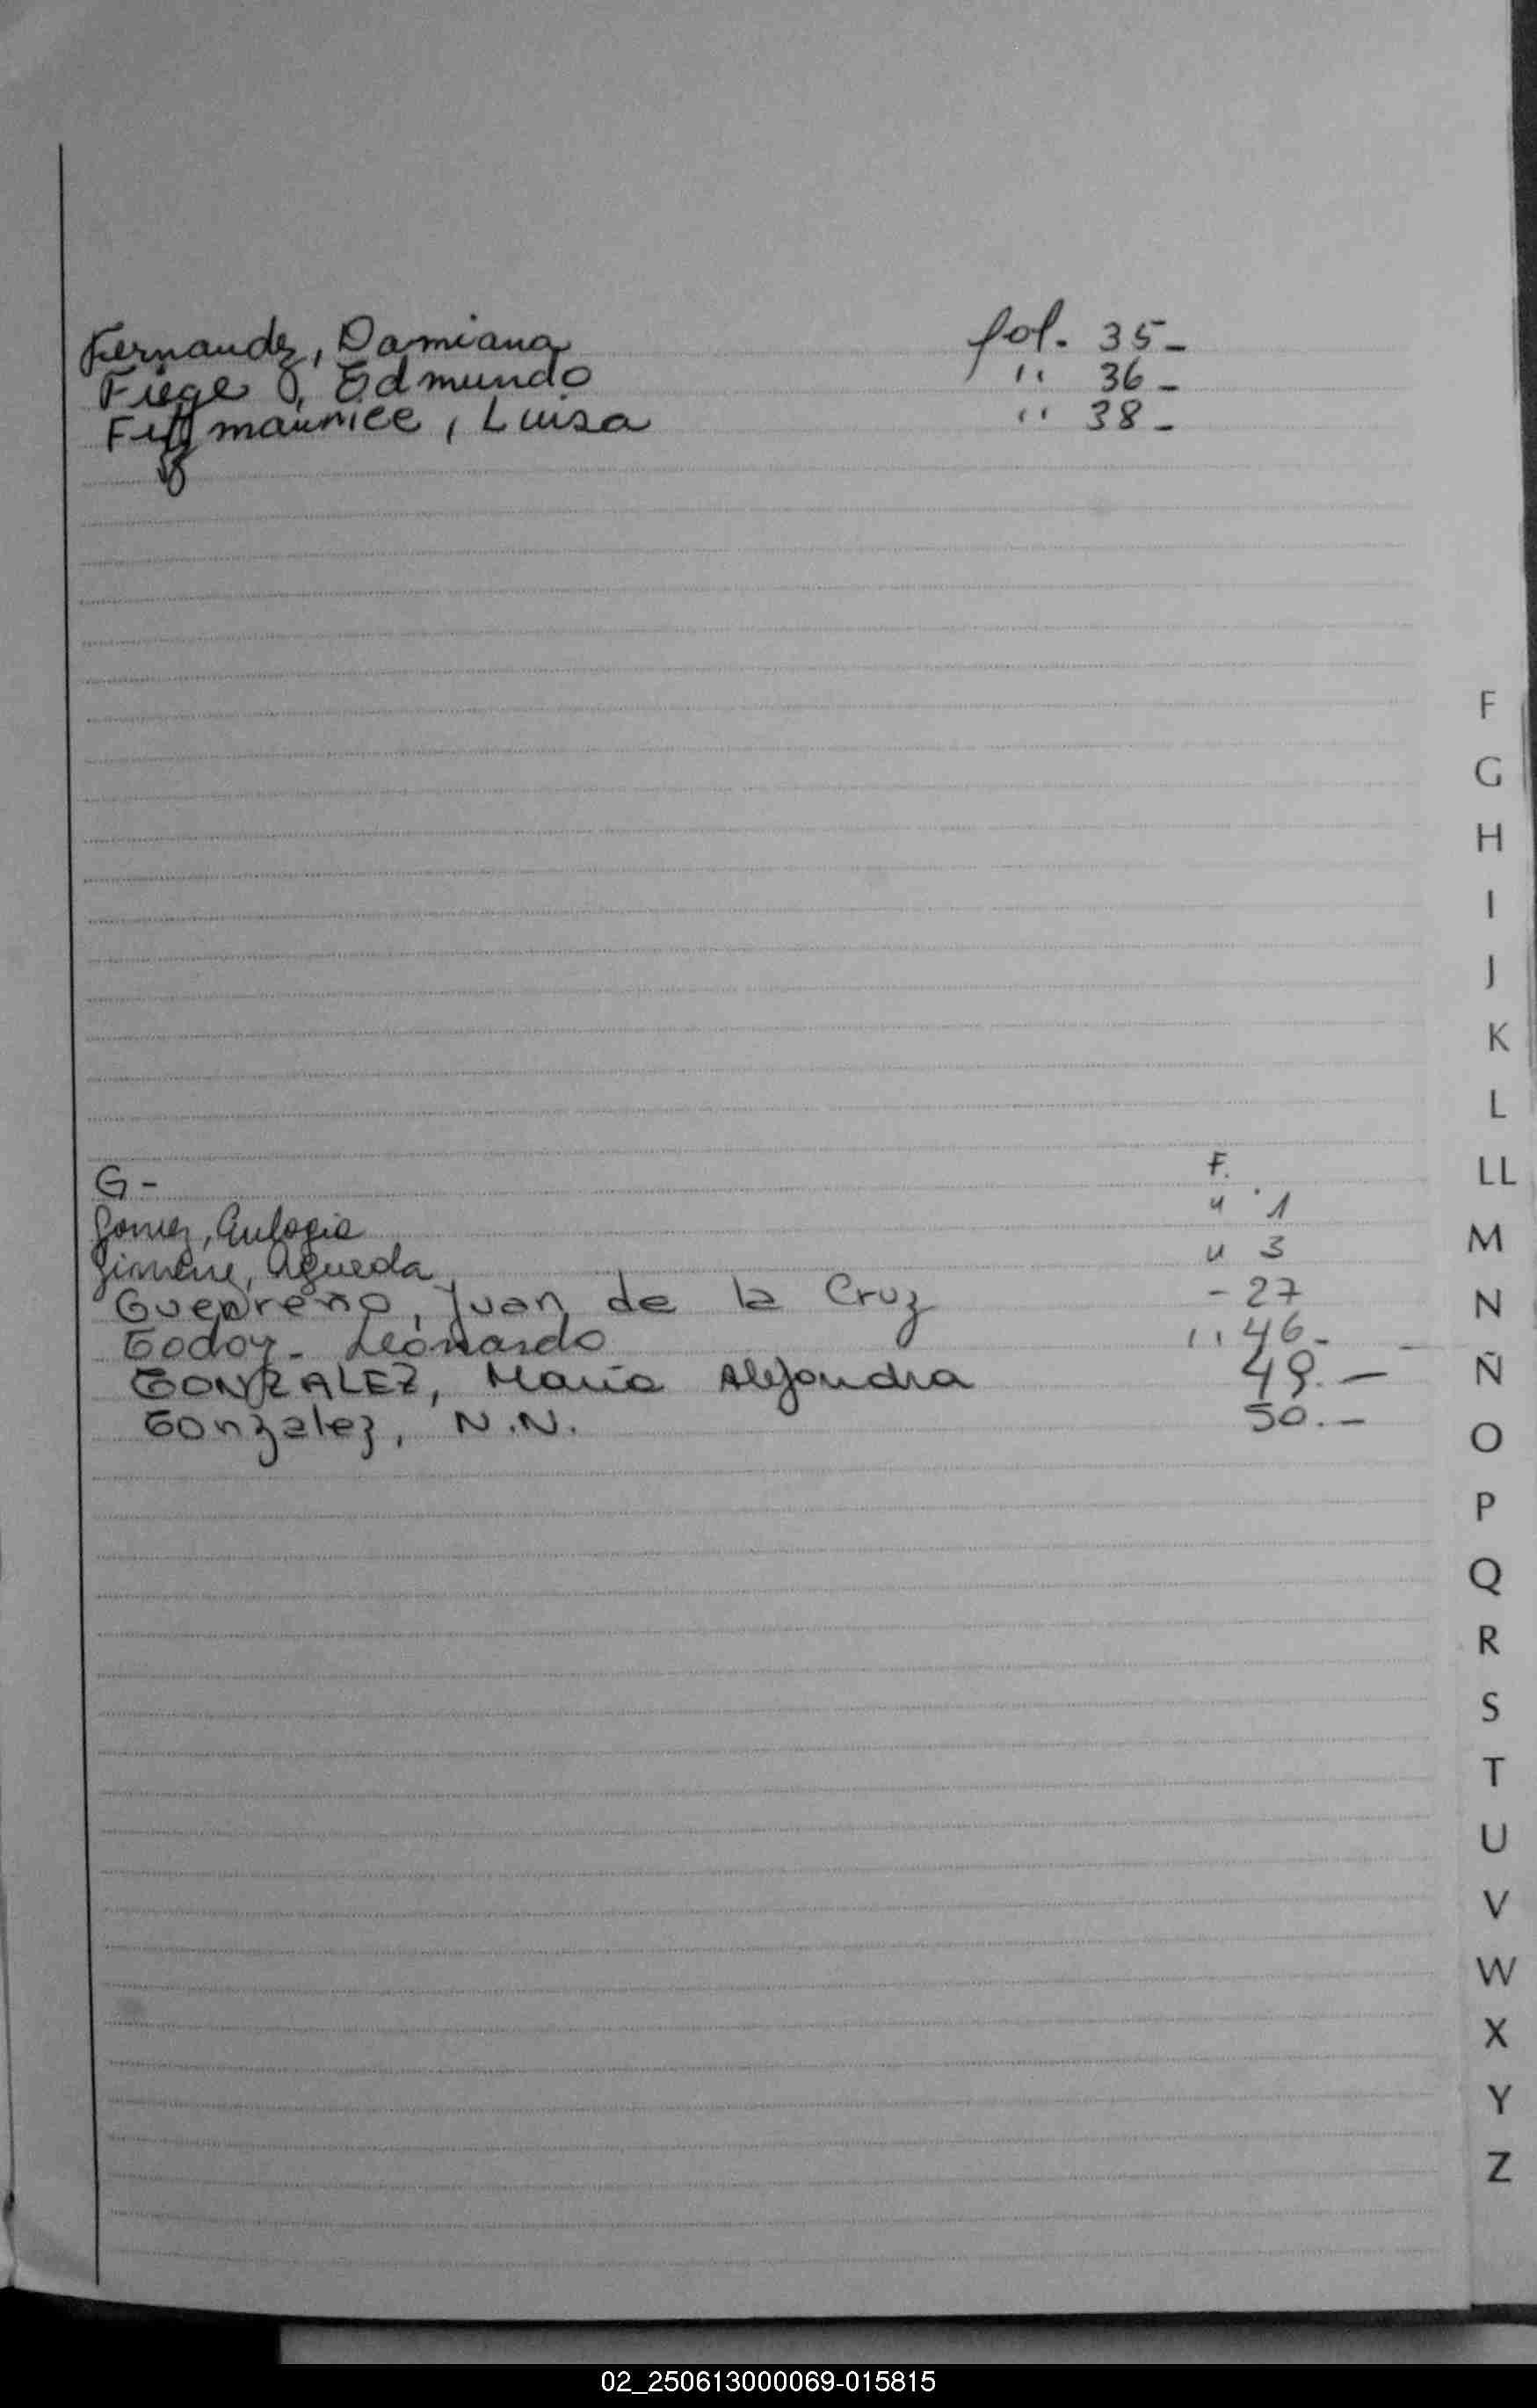 Fernandez, Damiana fol. 35-
Fiege, Edmundo " 36-
Fitzmaurice, Luisa " 38-
G - F.
Gomez, Eulogia " 1
Gimene, Agueda " 3
Guerreño, Juan de la Cruz - 27
Godoy - Leonardo " 46-
GONZALEZ, Maria Alejandra 49.-
Gonzalez, N.N. 50.-
F
G
H
I
J
K
L
LL
M
N
Ñ
O
P
Q
R
S
T
U
V
W
X
Y
Z
02_250613000069-015815